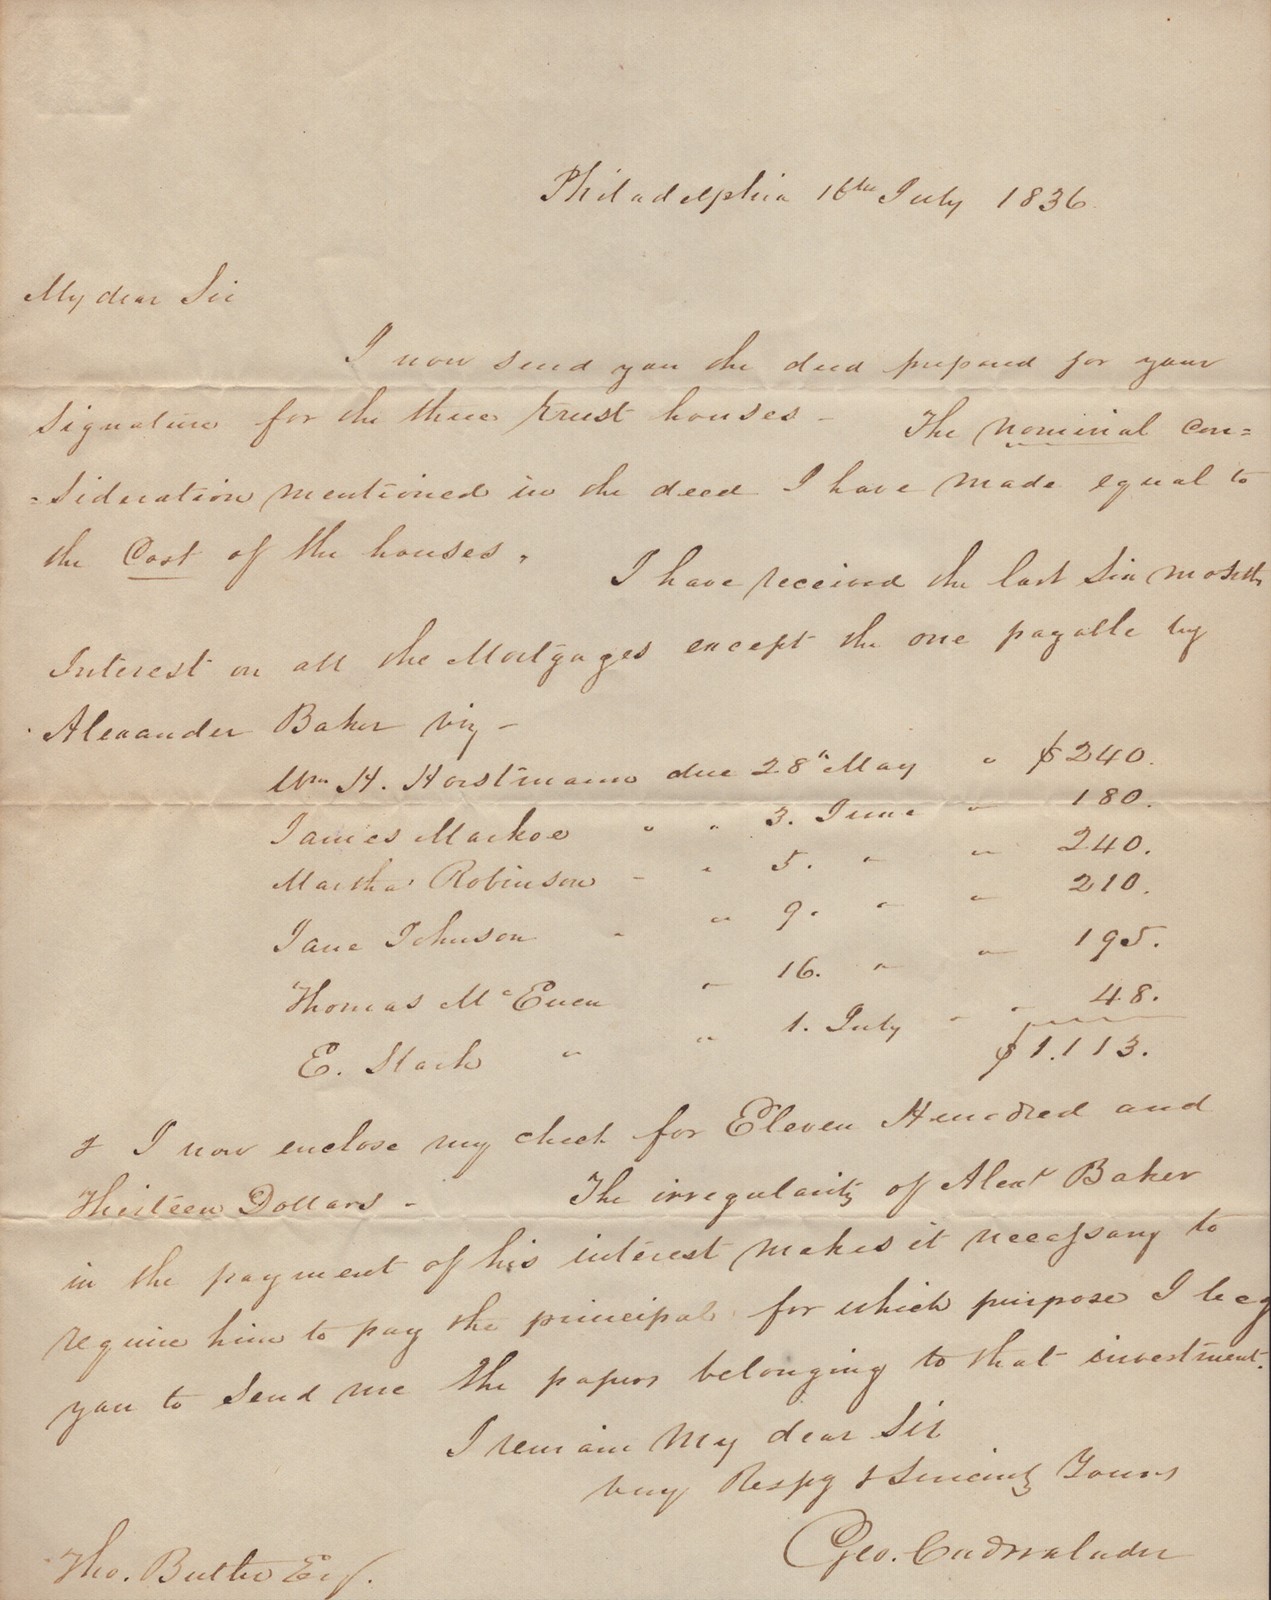 Philadelphia 16th July 1836.
My dear Sir
I now send you the deed prepared for your
signature for the three trust houses - The nominal con=
=sideration mentioned in the deed I have made equal to
the Cost of the houses. I have received the last Six months
Interest on all the Mortgages except the one payable by
Alexander Baker viz -
Wm H. Horstmann due 28" May " $240.
James Markoe " " 3. June " 180.
Martha Robinson - " 5. " " 240.
Jane Johnson " " 9. " " 210.
Thomas McEuen " 16. " " 195.
E. Stack " " 1. July " " 48.
$1.113.
& I now enclose my check for Eleven Hundred and
Thirteen Dollars - The irregularity of Alexr Baker
in the payment of his interest makes it necessary to
require him to pay the principal for which purpose I beg
you to send me the papers belonging to that investment.
I remain My dear Sir
very Respy & Sincerely Yours
Geo. Cadwalader
Tho. Butler Esq.